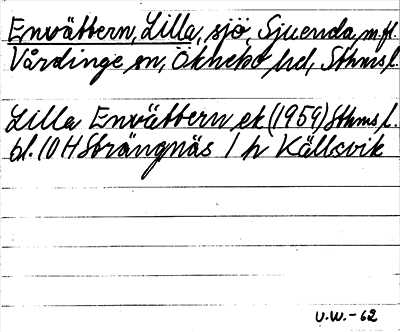 Envättern, Lilla, sjö, Sjuenda m.fl.
Vårdinge sn, Öknebo hd, Sthms l.
Lilla Envättern ek (1959) Sthms l.
bl. 10 H Strängnäs 1 h Källsvik
U.W.-62